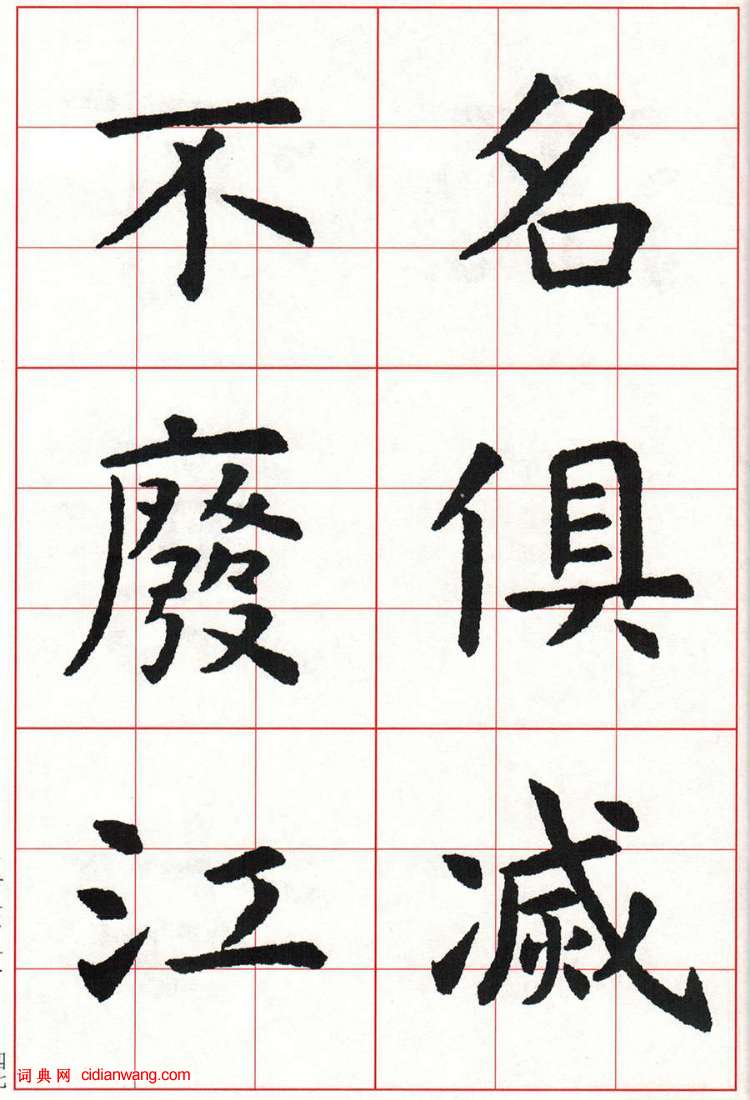 名俱滅
不廢江
词典网 cidianwang.com